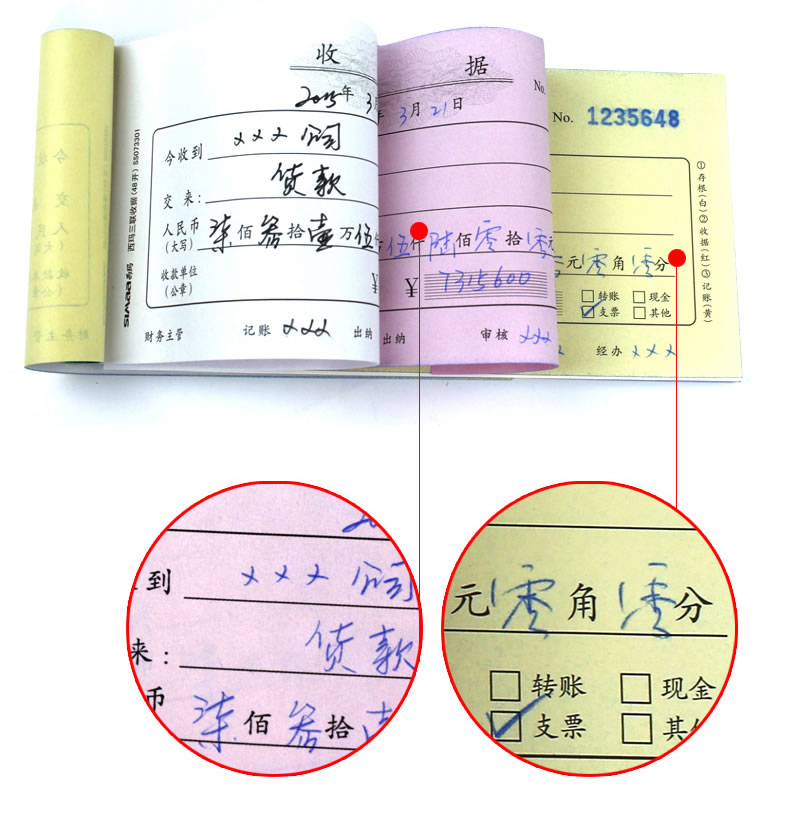 收 据
No.
No. 1235648
2015年 3
年 3月 21日
今收到 ××× 公司
交 来： 货款
人民币 柒佰叁拾壹万伍
(大写)
伍仟陆佰零拾零元
元零角零分
收款单位
(公章)
¥
¥ 7315600
转账 现金
支票 其他
财务主管 记账 ××× 出纳
出纳 审核 ×××
经办 ×××
SIMAA 西玛 西玛三联收据(48开) SS073301
①存根(白)②收据(红)③记账(黄)
到 ××× 公司
来： 货款
币 柒佰叁拾壹
元零角零分
转账 现金
支票 其他